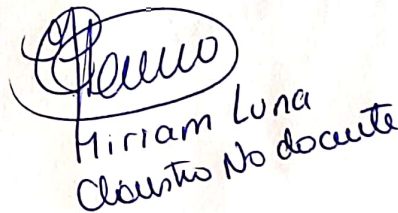 Miriam Luna
Claustro No docente